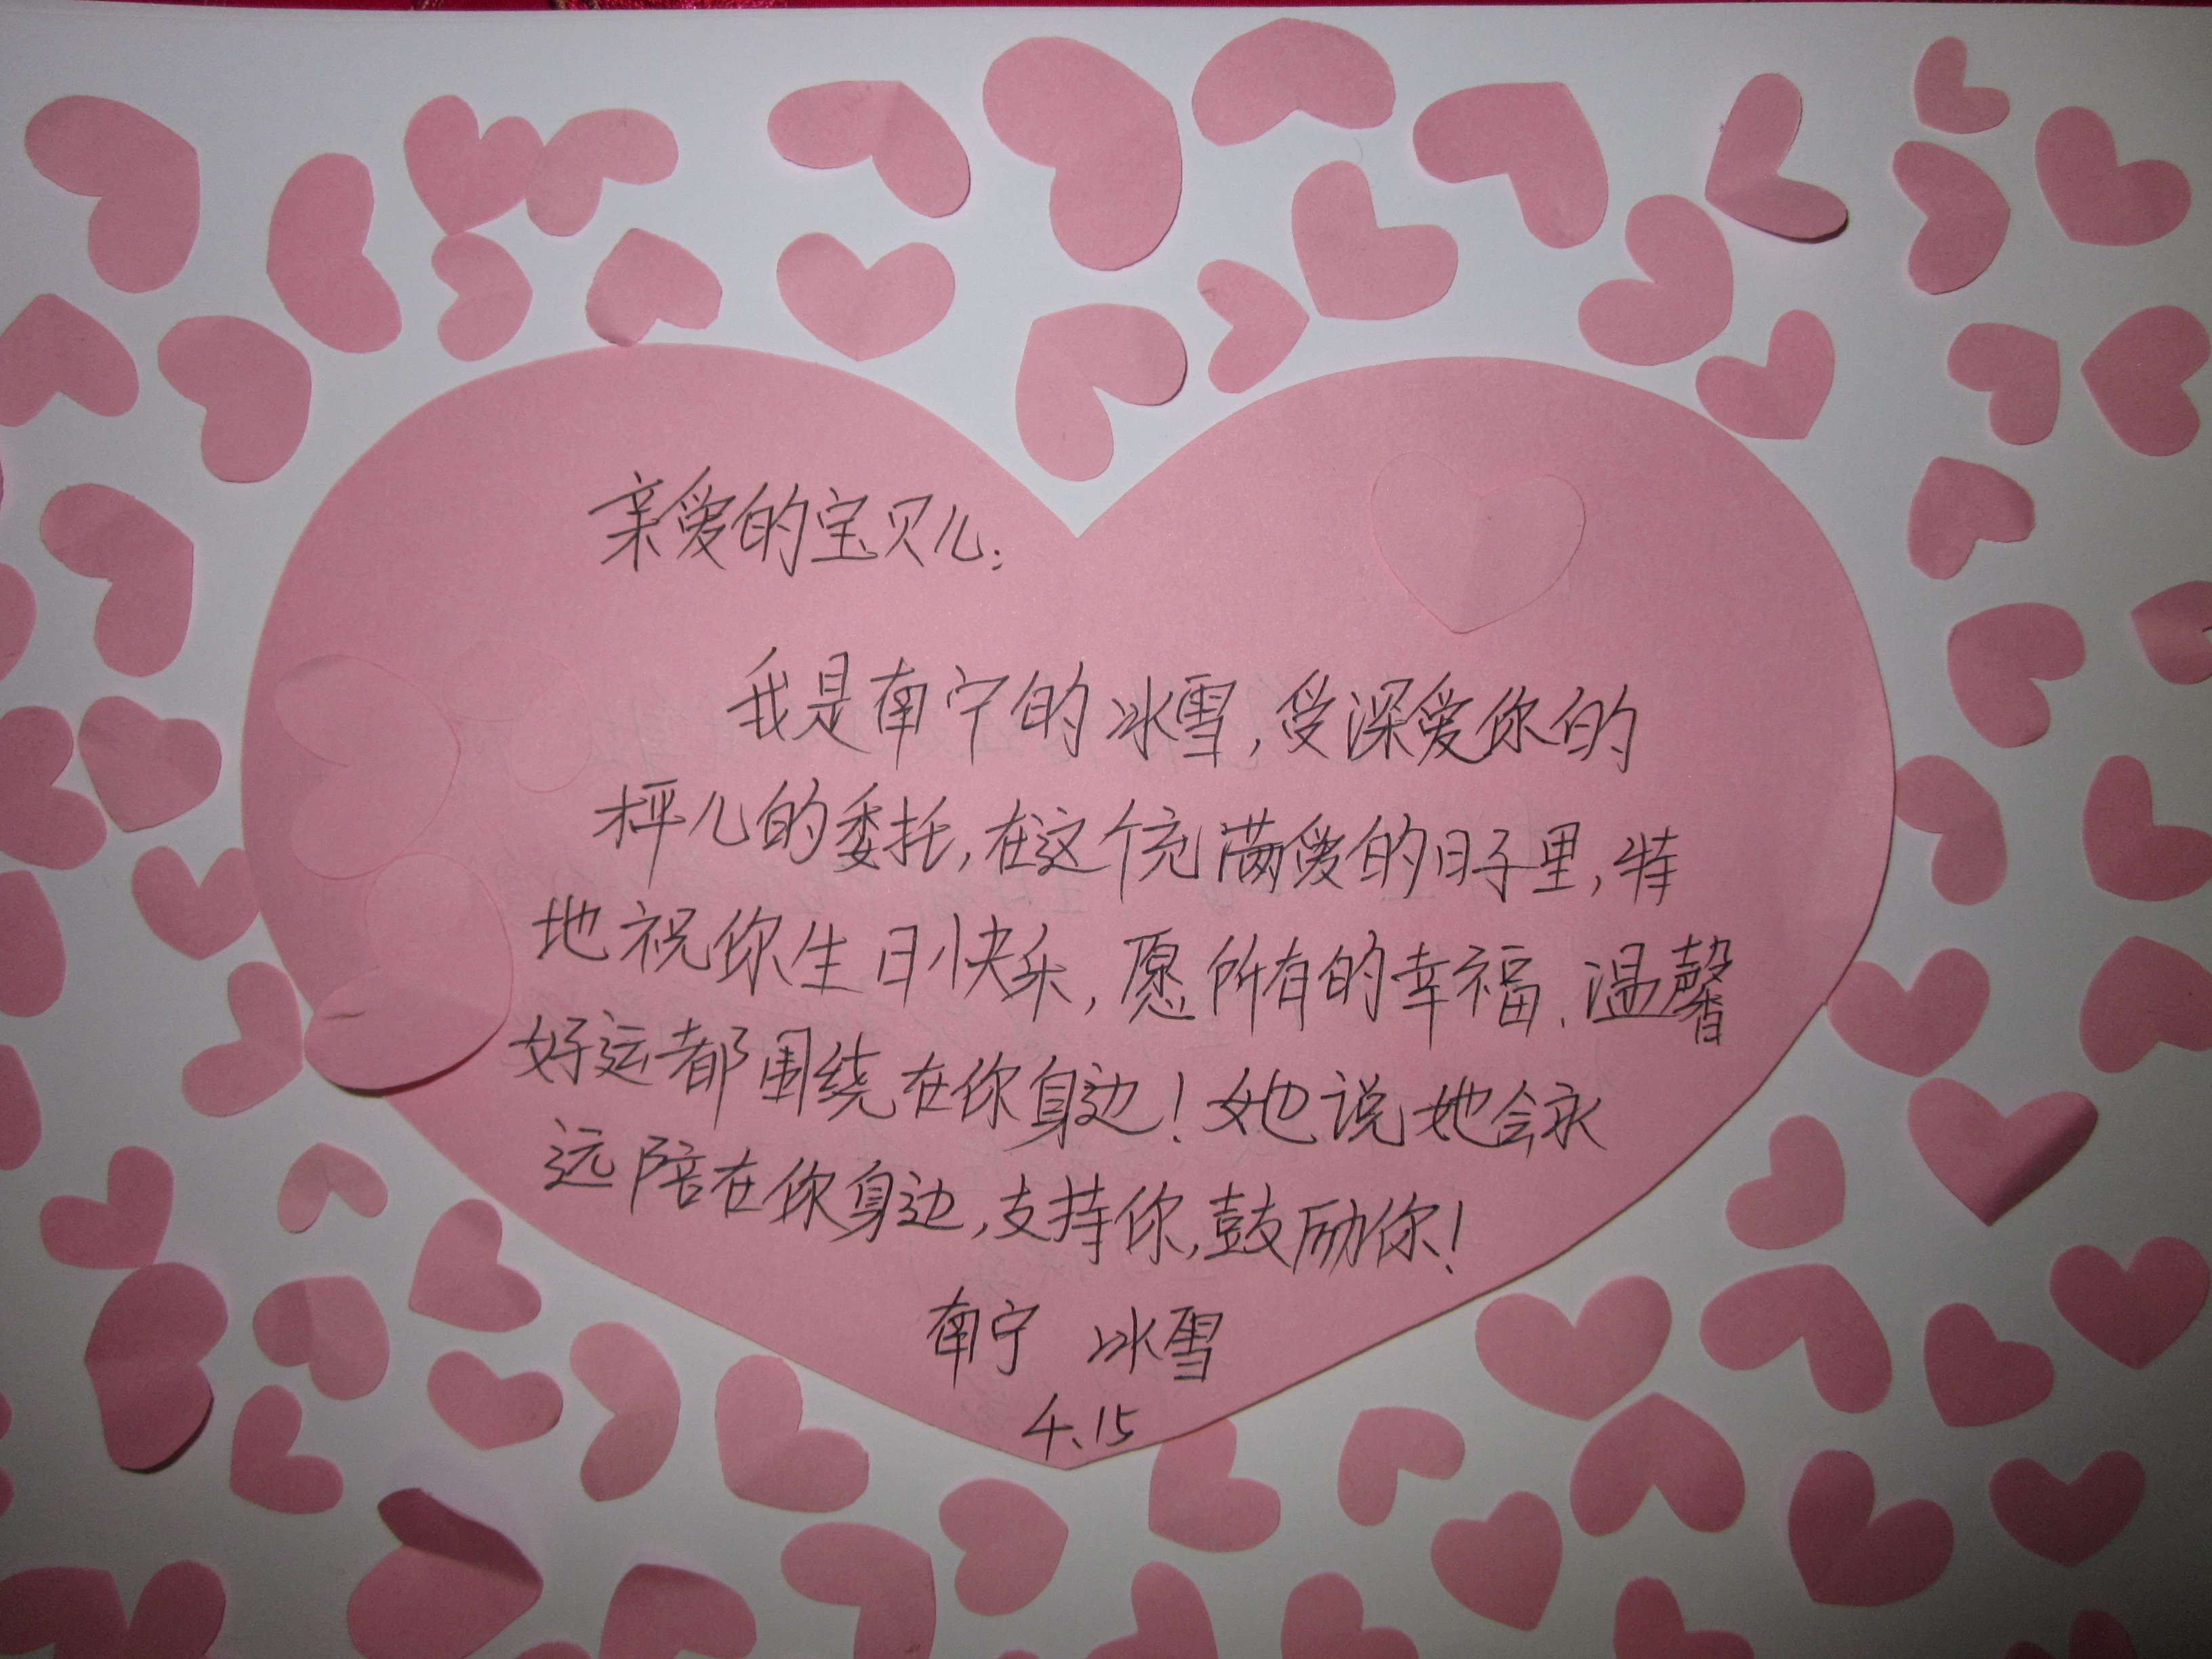 亲爱的宝贝儿:
我是南宁的冰雪,受深爱你的
枰儿的委托,在这个充满爱的日子里,特
地祝你生日快乐,愿所有的幸福、温馨
好运都围绕在你身边!她说她会永
远陪在你身边,支持你,鼓励你!
南宁 冰雪
4.15